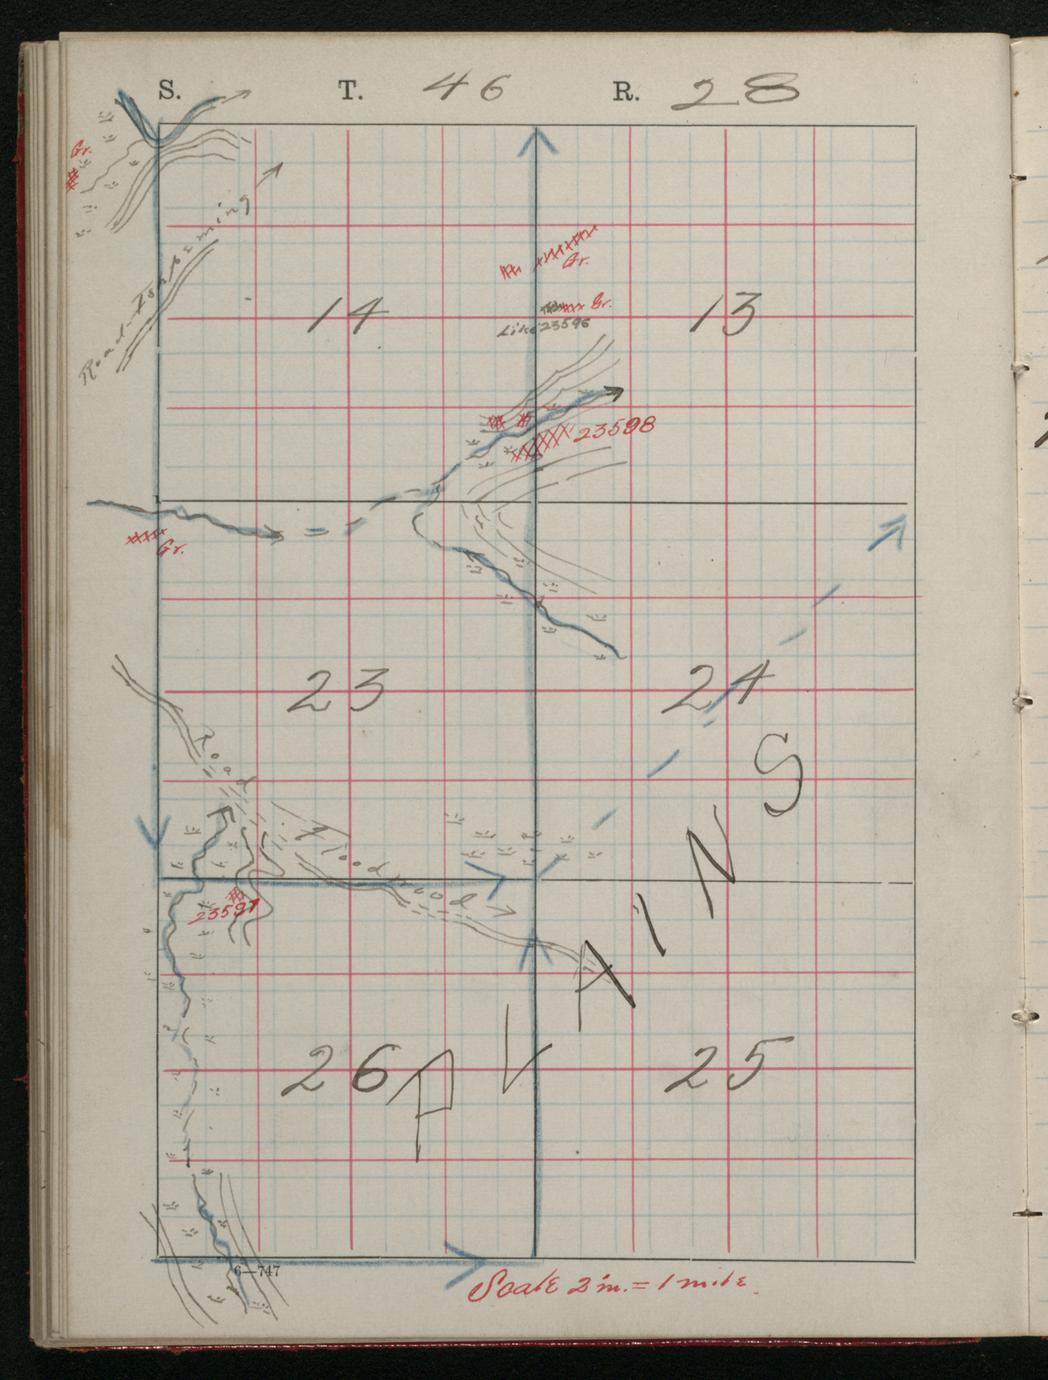 S. T. 46 R. 28
Gr.
Road-Ishpeming
Gr.
14
Gr.
13
Like 23596
23598
Gr.
23
24
Road
Flood wood
23597
PLAINS
26
25
6—747
Scale 2 in. = 1 mile.